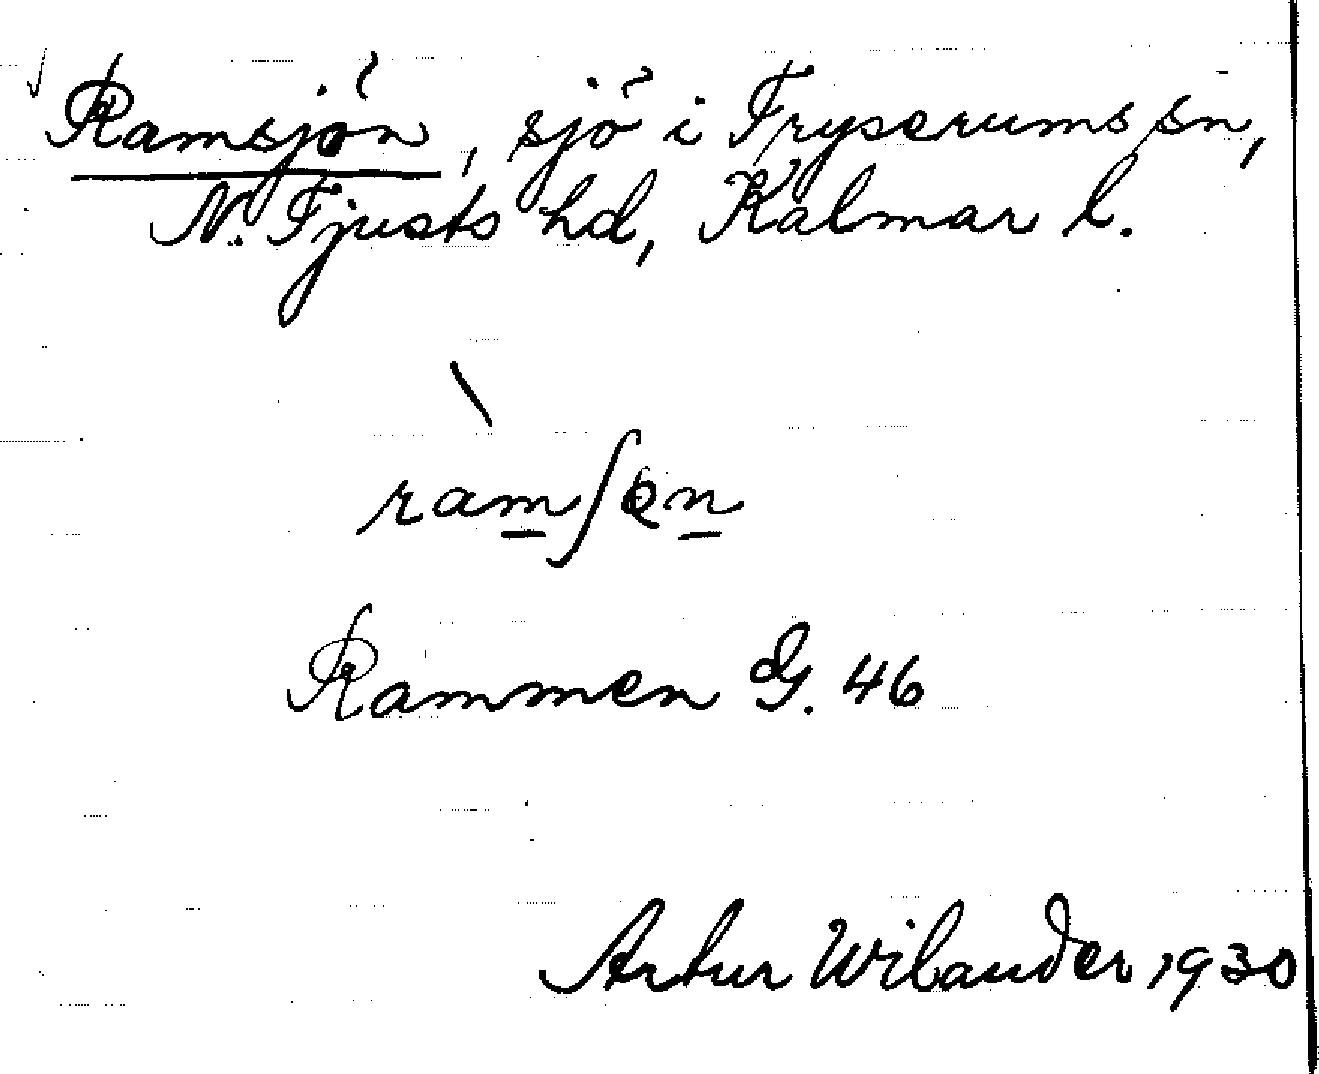 Ramsjön, sjö i Tryserums sn,
N. Tjusts hd, Kalmar l.
ràmʃøn
Rammen G. 46
Artur Wilander 1930